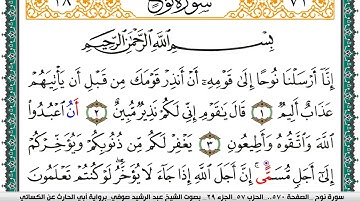 ٧١ سورة نوح ٢٨
بِسْمِ اللَّهِ الرَّحْمَٰنِ الرَّحِيمِ
إِنَّا أَرْسَلْنَا نُوحًا إِلَىٰ قَوْمِهِ أَنْ أَنذِرْ قَوْمَكَ مِن قَبْلِ أَن يَأْتِيَهُمْ
عَذَابٌ أَلِيمٌ ١ قَالَ يَٰقَوْمِ إِنِّي لَكُمْ نَذِيرٌ مُّبِينٌ ٢ أَنُ اعْبُدُوا
اللَّهَ وَاتَّقُوهُ وَأَطِيعُونِ ٣ يَغْفِرْ لَكُم مِّن ذُنُوبِكُمْ وَيُؤَخِّرْكُمْ
إِلَىٰ أَجَلٍ مُّسَمًّى إِنَّ أَجَلَ اللَّهِ إِذَا جَاءَ لَا يُؤَخَّرُ لَوْ كُنتُمْ تَعْلَمُونَ
سورة نوح - الصفحة ٥٧٠.. الحزب ٥٧ الجزء ٢٩ بصوت الشيخ عبد الرشيد صوفي برواية أبي الحارث عن الكسائي